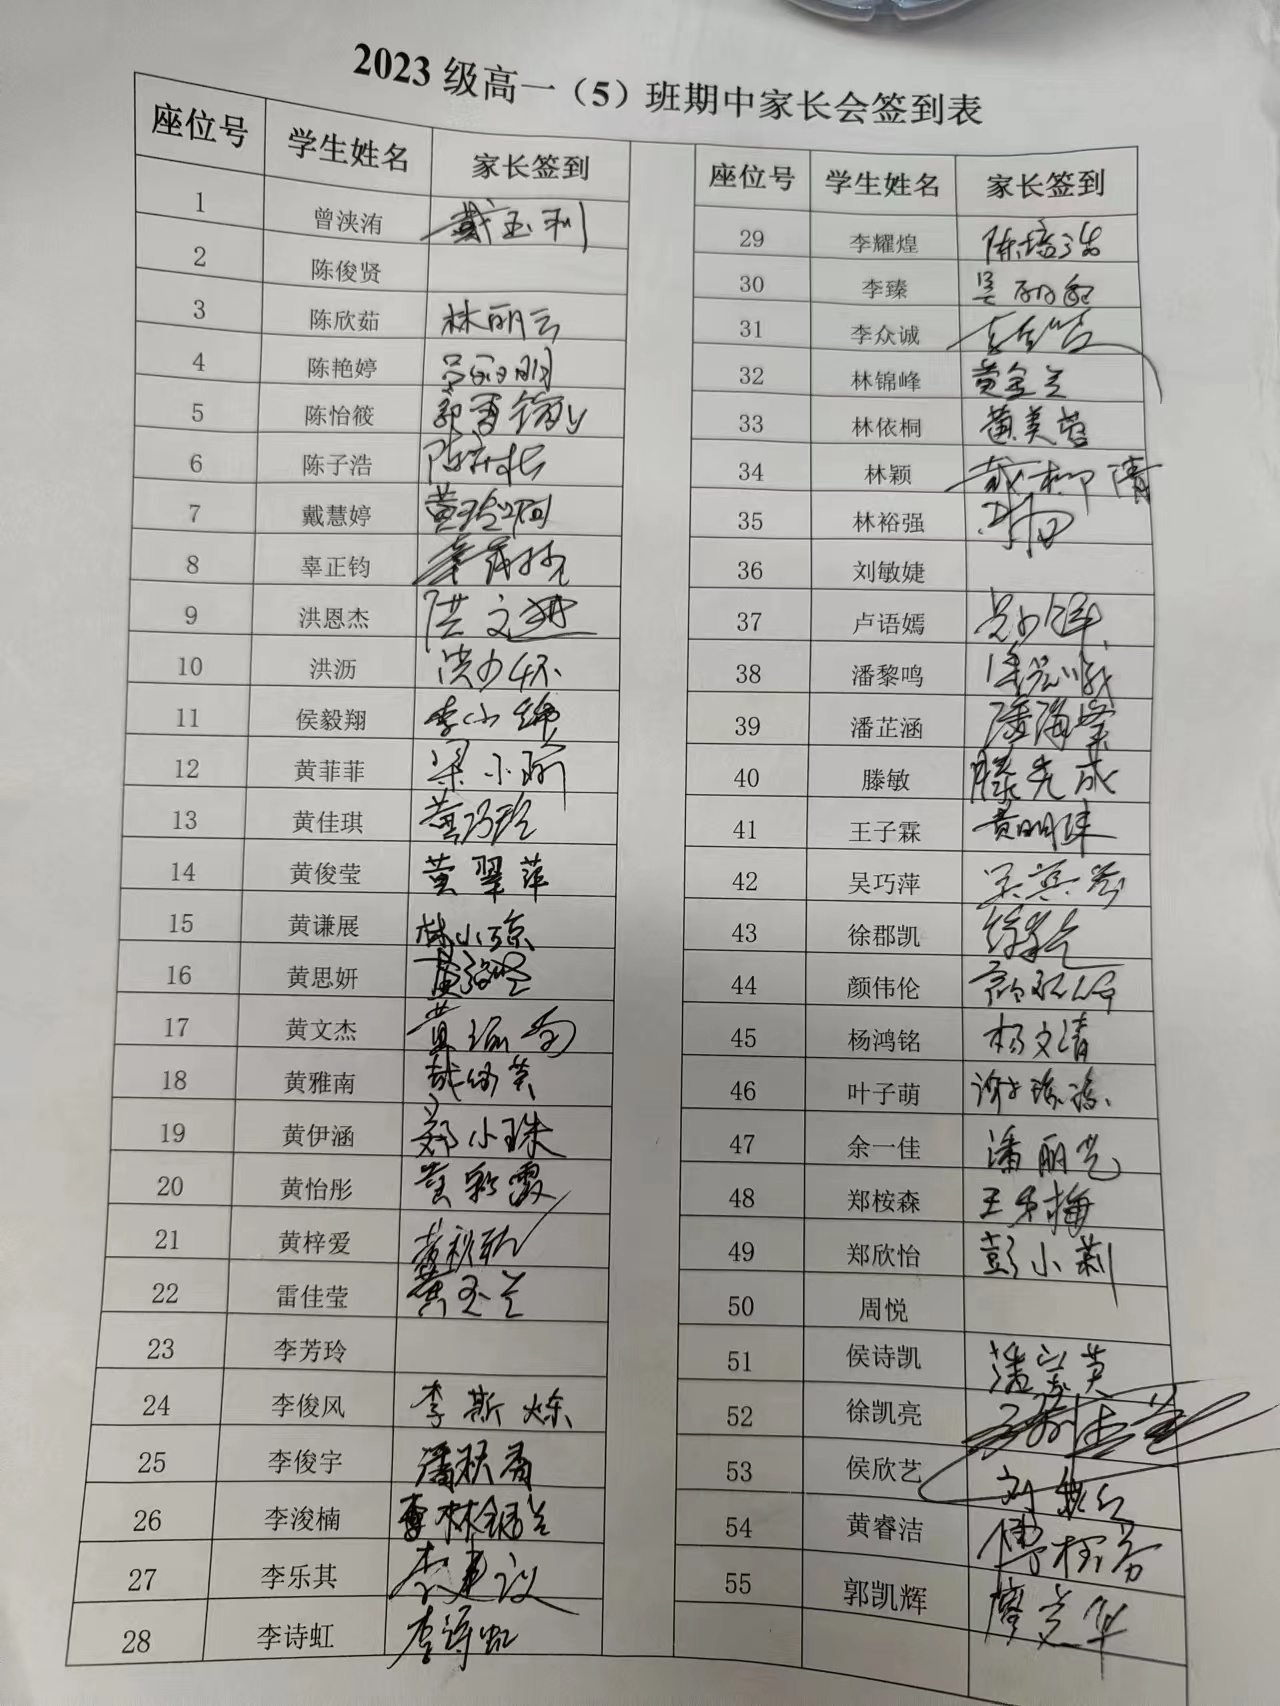 2023级高一（5）班期中家长会签到表
座位号 学生姓名 家长签到 座位号 学生姓名 家长签到
1 曾浃洧 戴玉利 29 李耀煌 陈培浩
2 陈俊贤 30 李臻
3 陈欣茹 林丽云 31 李众诚
4 陈艳婷 吕丽明 32 林锦峰 黄金兰
5 陈怡筱 33 林依桐 黄美蓉
6 陈子浩 34 林颖 戴柳清
7 戴慧婷 35 林裕强
8 辜正钧 36 刘敏婕
9 洪恩杰 洪文进 37 卢语嫣
10 洪沥 洪少怀 38 潘黎鸣
11 侯毅翔 李小锦 39 潘芷涵 潘海棠
12 黄菲菲 梁小瑜 40 滕敏 滕先成
13 黄佳琪 黄巧玲 41 王子霖 黄明珠
14 黄俊莹 黄翠萍 42 吴巧萍
15 黄谦展 林小琼 43 徐郡凯
16 黄思妍 44 颜伟伦
17 黄文杰 45 杨鸿铭 杨文清
18 黄雅南 46 叶子萌
19 黄伊涵 郑小珠 47 余一佳 潘丽芝
20 黄怡彤 黄彩霞 48 郑桉森
21 黄梓爱 49 郑欣怡 彭小莉
22 雷佳莹 黄玉兰 50 周悦
23 李芳玲 51 侯诗凯
24 李俊风 李斯炼 52 徐凯亮
25 李俊宇 潘秋香 53 侯欣艺
26 李浚楠 54 黄睿洁
27 李乐其 李建议 55 郭凯辉 廖志华
28 李诗虹 李诗虹